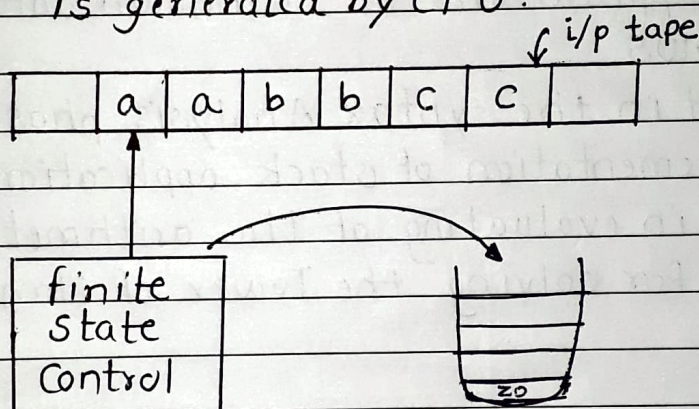 is generated by
i/p tape
a a b b c c
finite
state
control
z0